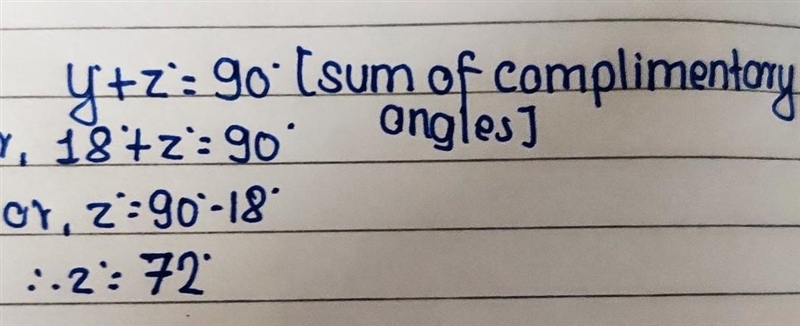 y+z°=90° [sum of complimentory
angles]
r, 18°+z°=90°
or, z°=90°-18°
∴z°= 72°